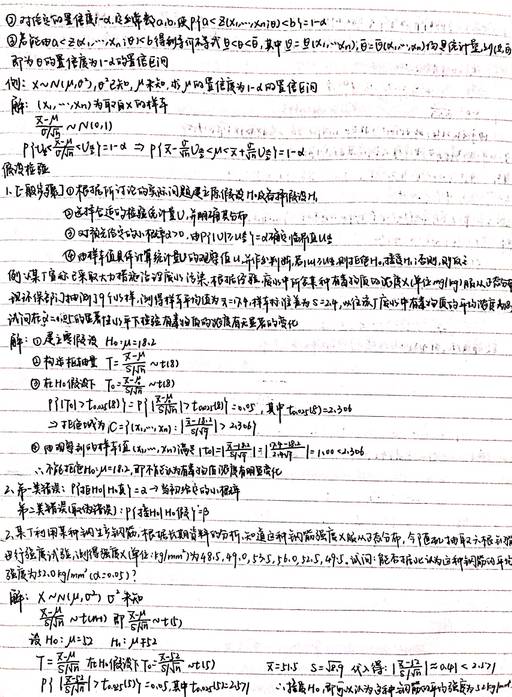 ② 对给定的置信度1-α,定出常数a,b,使P{a<Z(x₁,…,xₙ;θ)<b}=1-α
③ 若能由a<Z(x₁,…,xₙ;θ)<b得到等价不等式θ<θ<θ̄,其中θ=θ(x₁,…,xₙ),θ̄=θ̄(x₁,…,xₙ)均是统计量,则(θ,θ̄)
即为θ的置信度为1-α的置信区间
例:X~N(μ,σ²),σ²已知,μ未知,求μ的置信度为1-α的置信区间
解:(x₁,…,xₙ)为取自X的样本
(x̄-μ)/(σ/√n) ~N(0,1)
P{ <(x̄-μ)/(σ/√n)<U}=1-α ⇒ P{x̄-σ/√n U<μ<x̄+σ/√n U}=1-α
假设检验
1.[一般步骤] ①根据所讨论的实际问题建立原假设H₀及备择假设H₁
②选择合适的检验统计量U,并明确其分布
③对预先给定的小概率α>0,由P{|U|≥U}=α确定临界值U
④由样本值具体计算统计量U的观察值u,并作出判断,若|u|≥u则拒绝H₀,接受H₁;否则,
例:某厂宣称已采取大力措施治理废水污染,根据经验,废水中所含某种有毒物质的浓度X(单位:mg/kg)服从正态分布
现环保部门抽测了9个水样,测得样本平均值为x̄=17.4,样本标准差为s=2.4,以往该厂废水中有毒物质的平均浓度为18.2
试问在α=0.05的显著性水平下检验有毒物质的浓度有无显著的变化
解:①建立原假设 H₀:μ=18.2
②构造枢轴量 T=(x̄-μ)/(s/√n) ~t(8)
③在H₀假设下 T₀=(x̄-μ)/(s/√n) ~t(8)
P{|T₀|>t₀.₀₂₅(8)}=P{|(x̄-18.2)/(s/√n)|>t₀.₀₂₅(8)}=0.05,其中t₀.₀₂₅(8)=2.306
⇒拒绝域为,C={(x₁,…,xₙ):|(x̄-18.2)/(s/√9)|>2.306}
④由测得到的样本值(x₁,…,xₙ)满足|t₀|=|(x̄-18.2)/(s/√n)|=|(17.4-18.2)/(2.4/√9)|=1.00<2.306
∴不能拒绝H₀:μ=18.2,即不能认为有毒物质浓度有明显变化
2.第一类错误:P{拒H₀|H₀真}=α→当初给定的小概率
第二类错误(取伪错误):P{接H₀|H₀假}=β
2.某厂利用某种钢生产钢筋,根据长期资料的分析,知道这种钢筋强度X服从正态分布,今随机抽取六根钢筋
进行强度试验,测得强度X(单位:kg/mm²)为48.5,49.0,53.5,56.0,52.5,49.5.试问:能否据此认为这种钢筋的平均
强度为52.0kg/mm²(α=0.05)?
解:X~N(μ,σ²) σ²未知
(x̄-μ)/(s/√n) ~t(n-1) 即(x̄-μ)/(s/√n) ~t(5)
设H₀:μ=52 H₁:μ≠52
T=(x̄-μ)/(s/√n) 在H₀假设下T₀=(x̄-52)/(s/√n) ~t(5) x̄=51.5 s=√8.9 代入得:|(x̄-52)/(s/√n)|≈0.41<2.571
P{|(x̄-52)/(s/√n)|>t₀.₀₂₅(5)}=0.05,其中t₀.₀₂₅(5)=2.571 ∴接受H₀,即可以认为这种钢筋的平均强度为52kg/mm²